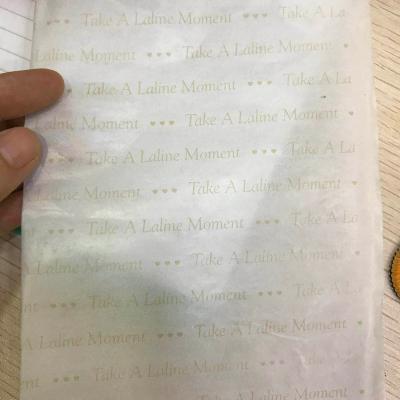 Take A Laline Moment ♥♥♥ Take A La
Laline Moment ♥♥♥ Take A Laline Moment ♥
Take A Laline Moment ♥♥♥ Take A La
Laline Moment ♥♥♥ Take A Laline Moment ♥
Take A Laline Moment ♥♥♥ Take A La
Laline Moment ♥♥♥ Take A Laline Moment ♥
♥♥♥ Take A Laline Moment ♥♥♥ Take A La
A Laline Moment ♥♥♥ Take A Laline Moment ♥
nt ♥♥♥ Take A Laline Moment ♥♥♥ Take A La
A Laline Moment ♥♥♥ Take A Laline Moment ♥
ent ♥♥♥ Take A Laline Moment ♥♥♥ Take A
Take A Laline Moment ♥